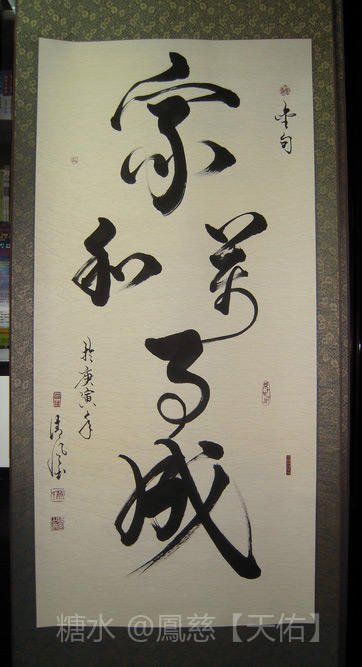 家
和萬
事
成
於庚寅年
清風
糖水 @鳳慈【天佑】